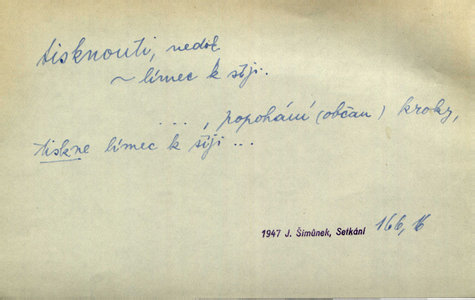 tisknouti, nedok
~ límec k šíji..
..., popohání (občan) kroky,
tiskne límec k šíji ...
1947 J. Šimůnek, Setkání 166, 16